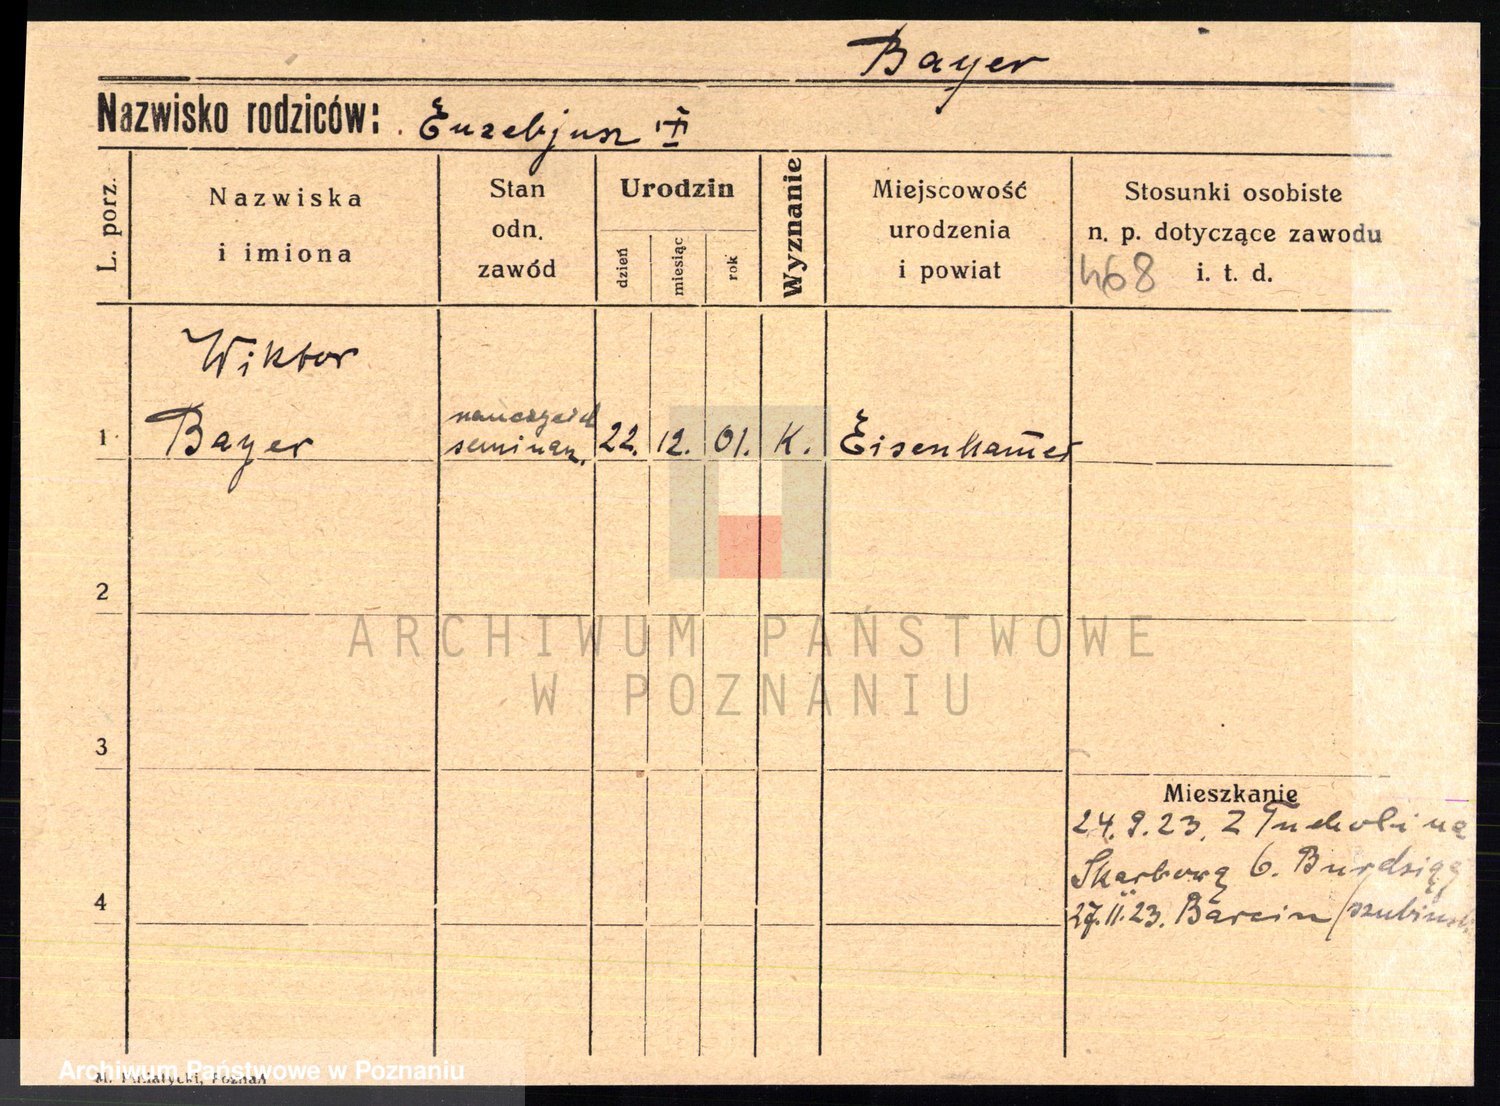 Bayer
Nazwisko rodziców: Euzebjusz
L. porz.
Nazwiska
i imiona
Stan
odn.
zawód
Urodzin
dzień
miesiąc
rok
Wyznanie
Miejscowość
urodzenia
i powiat
Stosunki osobiste
n. p. dotyczące zawodu
468 i. t. d.
Wiktor
1 Bayer
nauczyciel
seminar.
22. 12. 01. K. Eisenham̄er
2
ARCHIWUM PAŃSTWOWE
W POZNANIU
3
Mieszkanie
24. 9. 23. Z Tucholi na
Skarbową 6.
4
27.11.23. Barcin /szubiński
Archiwum Państwowe w Poznaniu
Poznań